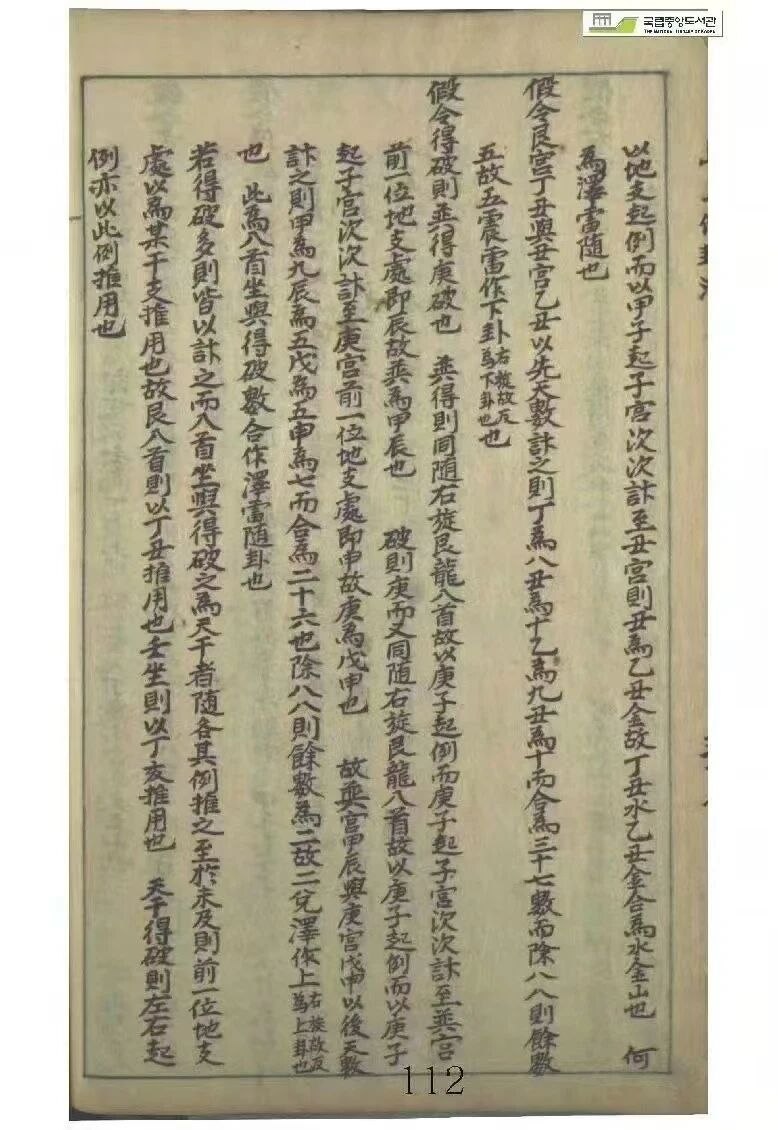 국립중앙도서관
THE NATIONAL LIBRARY OF KOREA
以地支起例而以甲子起子宮次次計至丑宮則丑為乙丑金故丁丑水乙丑金合為水金山也 何
為澤雷随也
假令艮宮丁丑與丑宮乙丑以先天數計之則丁為八丑為十乙為九丑為十而合為三十七數而除八八則餘數
五故五震雷作下卦右旋故反為下卦也也
假令得破則巽得庚破也 巽得則同随右旋艮龍八首故以庚子起例而庚子起子宮次次計至巽宮
前一位地支處即辰故巽為甲辰也 破則庚而又同随右旋艮龍八首故以庚子起例而以庚子
起子宮次次計至庚宮前一位地支處即申故庚為戊申也 故巽宮甲辰與庚宮戊申以後天數
計之則甲為九辰為五戊為五申為七而合為二十六也除八八則餘數為二故二兌澤作上右旋故反為上卦也
也 此為八首坐與得破數合作澤雷随卦也
若得破多則皆以計之而八首坐與得破之為天干者随各其例推之至於未及則前一位地支
處以為某干支推用也故艮八首則以丁丑推用也壬坐則以丁亥推用也 天干得破則左右起
例亦以此例推用也
112